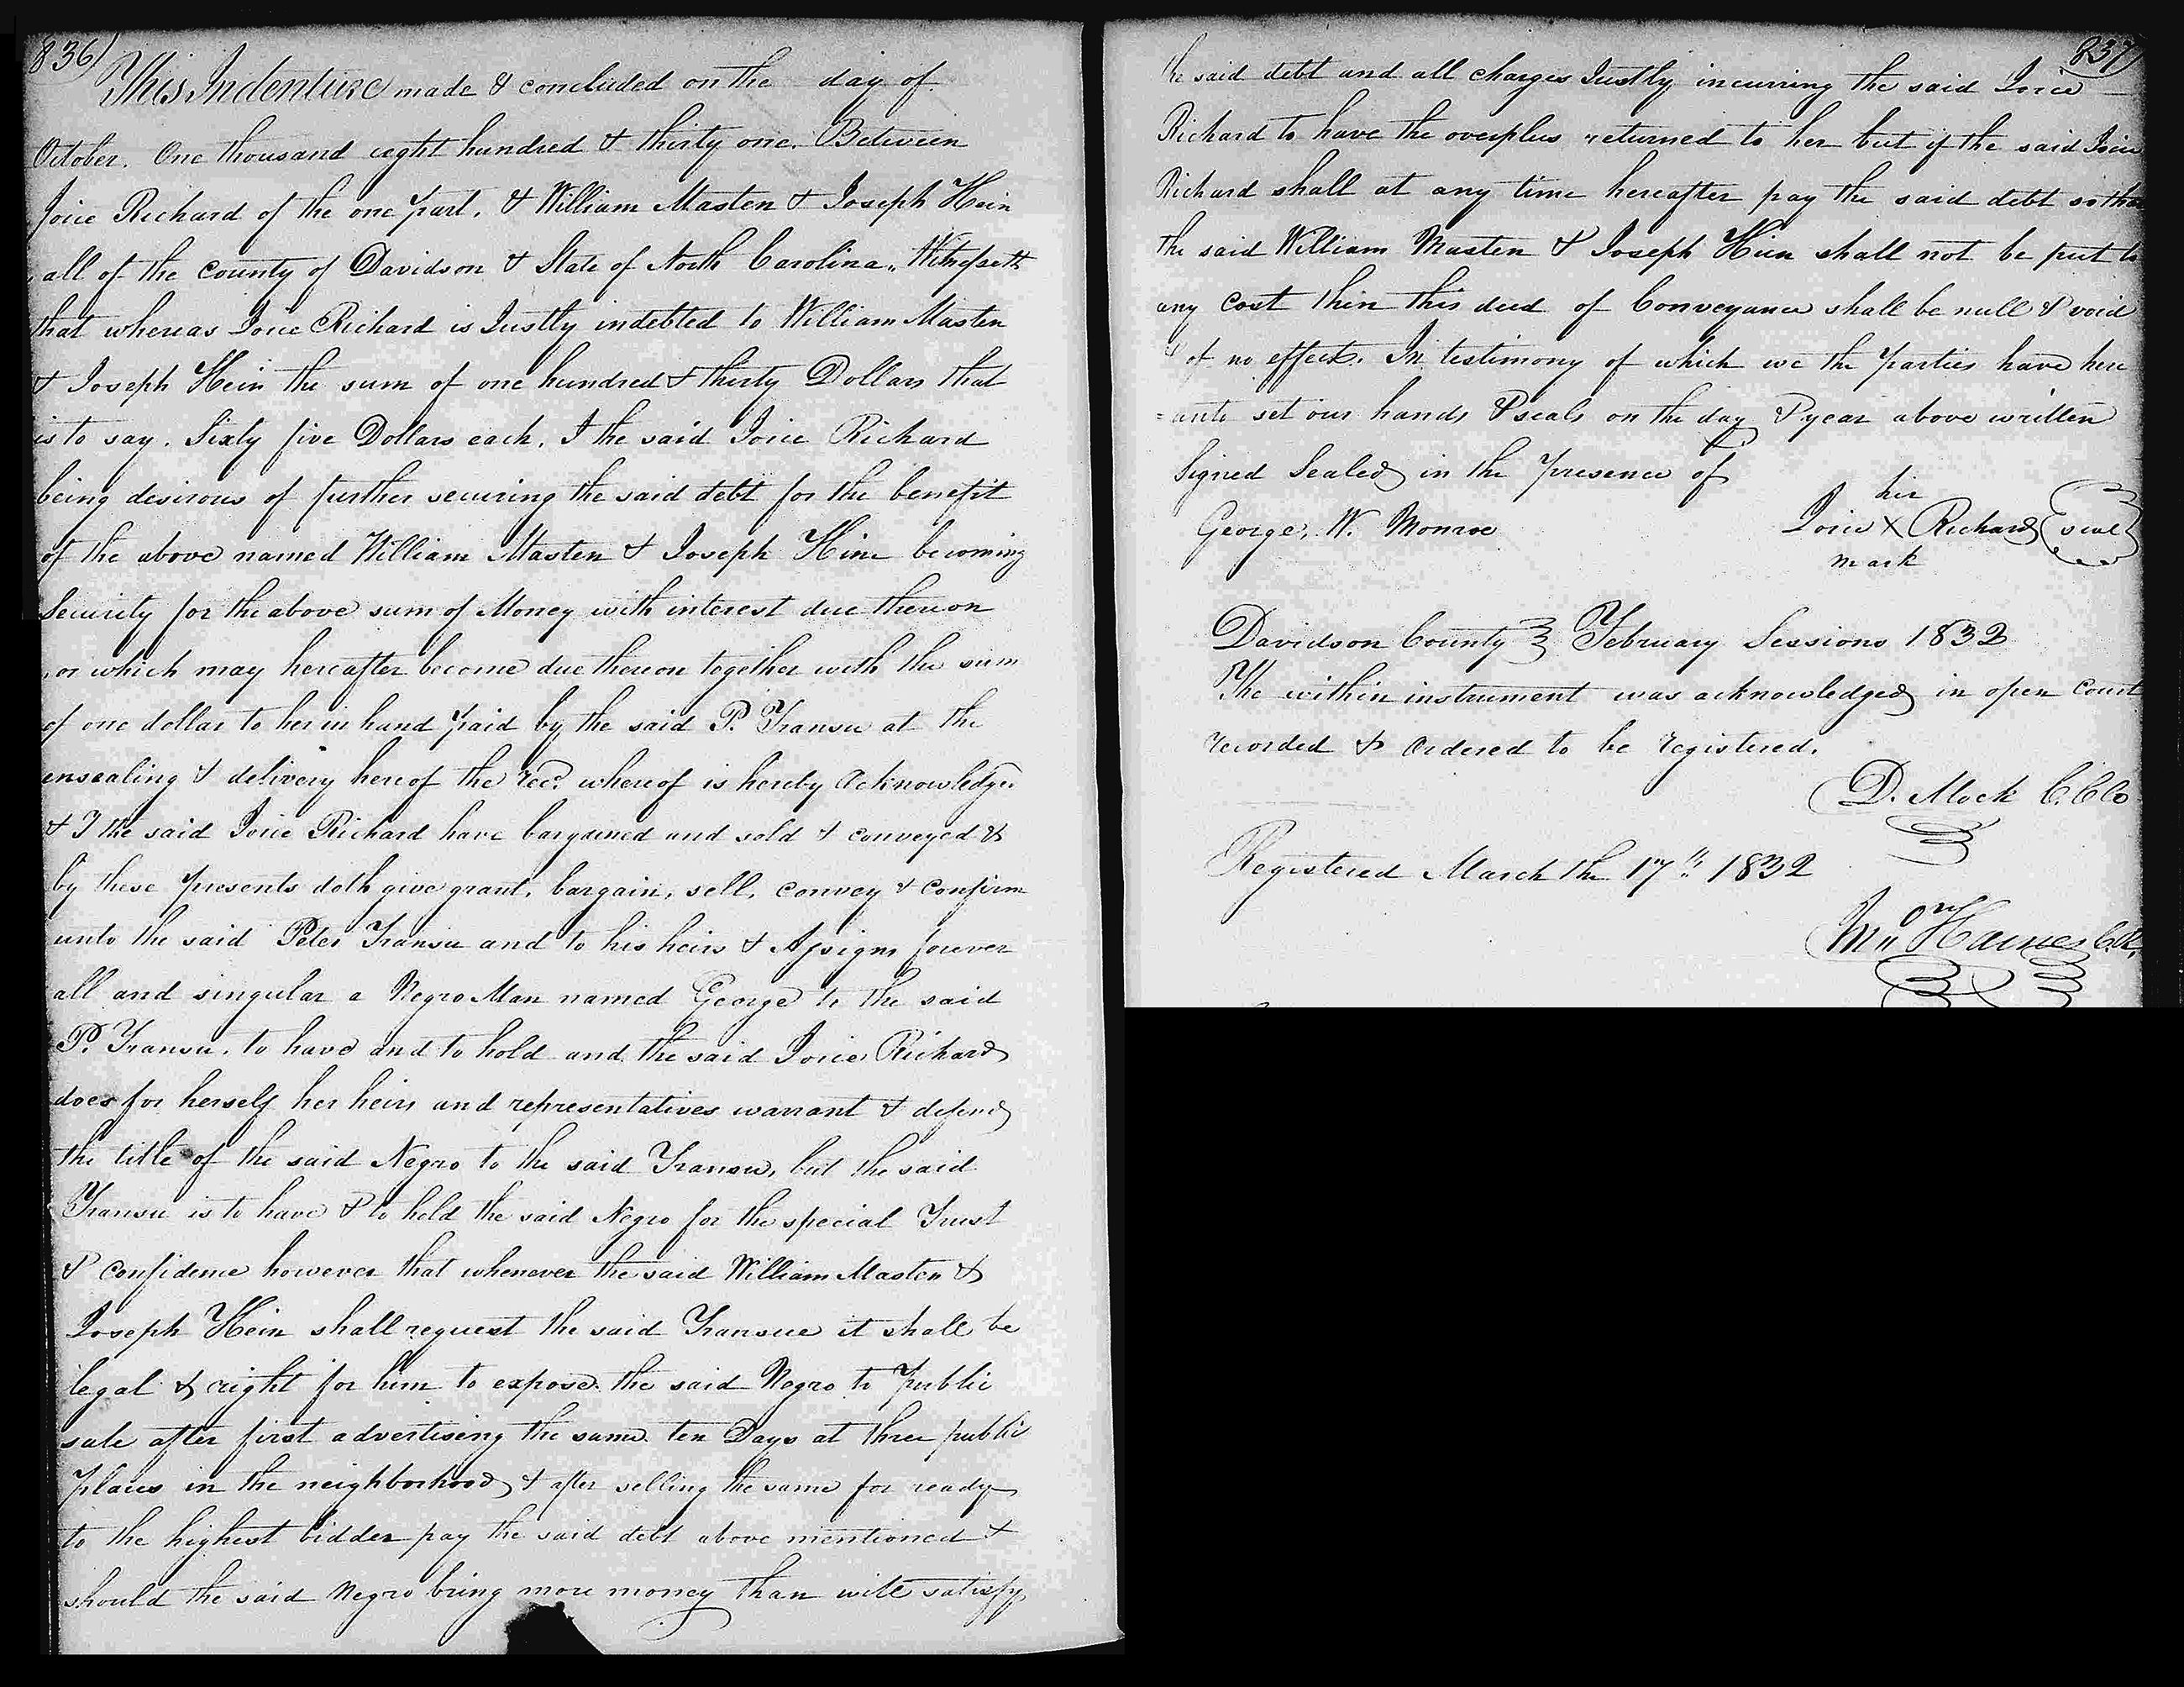 836)
This Indenture made & concluded on the day of
October. One thousand eight hundred & thirty one. Between
Joice Richard of the one part. & William Masten & Joseph Hein
all of the county of Davidson & State of North Carolina,, Witnesseth
that whereas Joice Richard is Justly indebted to William Masten
& Joseph Hein the sum of one hundred & thirty Dollars that
is to say. Sixty five Dollars each, I the said Joice Richard
being desirous of further securing the said debt for the benefit
of the above named William Masten & Joseph Hine becoming
Security for the above sum of Money with interest due thereon
or which may hereafter become due thereon together with the sum
of one dollar to her in hand paid by the said P. Transu at the
ensealing & delivery hereof the rec? whereof is hereby acknowledge
& I the said Joice Richard have bargained and sold & conveyed &
by these presents doth give grant, bargain, sell, convey & confirm
unto the said Peter Transu and to his heirs & Assigns forever
all and singular a Negro Man named George to the said
P. Transu. to have and to hold and the said Joice Richard
does for herself her heirs and representatives warrant & defend
the title of the said Negro to the said Transu, but the said
Transu is to have & to hold the said Negro for the special Trust
& confidence however that whenever the said William Masten &
Joseph Hein shall request the said Transue it shall be
legal & right for him to expose the said Negro to Public
sale after first advertiseing the same ten Days at three public
places in the neighborhood & after selling the same for ready
to the highest bidder pay the said debt above mentioned &
should the said Negro bring more money than will satisfy
837)
the said debt and all charges Justly incurring the said Joice
Richard to have the overplus returned to her but if the said Joice
Richard shall at any time hereafter pay the said debt so that
the said William Masten & Joseph Hien shall not be put to
any cost then this deed of Conveyance shall be null & void
& of no effect. In testimony of which we the parties have here
=unto set our hands & seals on the day & year above written
Signed Sealed in the presence of
her
George. W. Monroe Joice X Richard seal
mark
Davidson County February Sessions 1832
The within instrument was acknowledged in open court
recorded & ordered to be registered.
D. Mock C.C.C
Registered March the 17th 1832
Haines